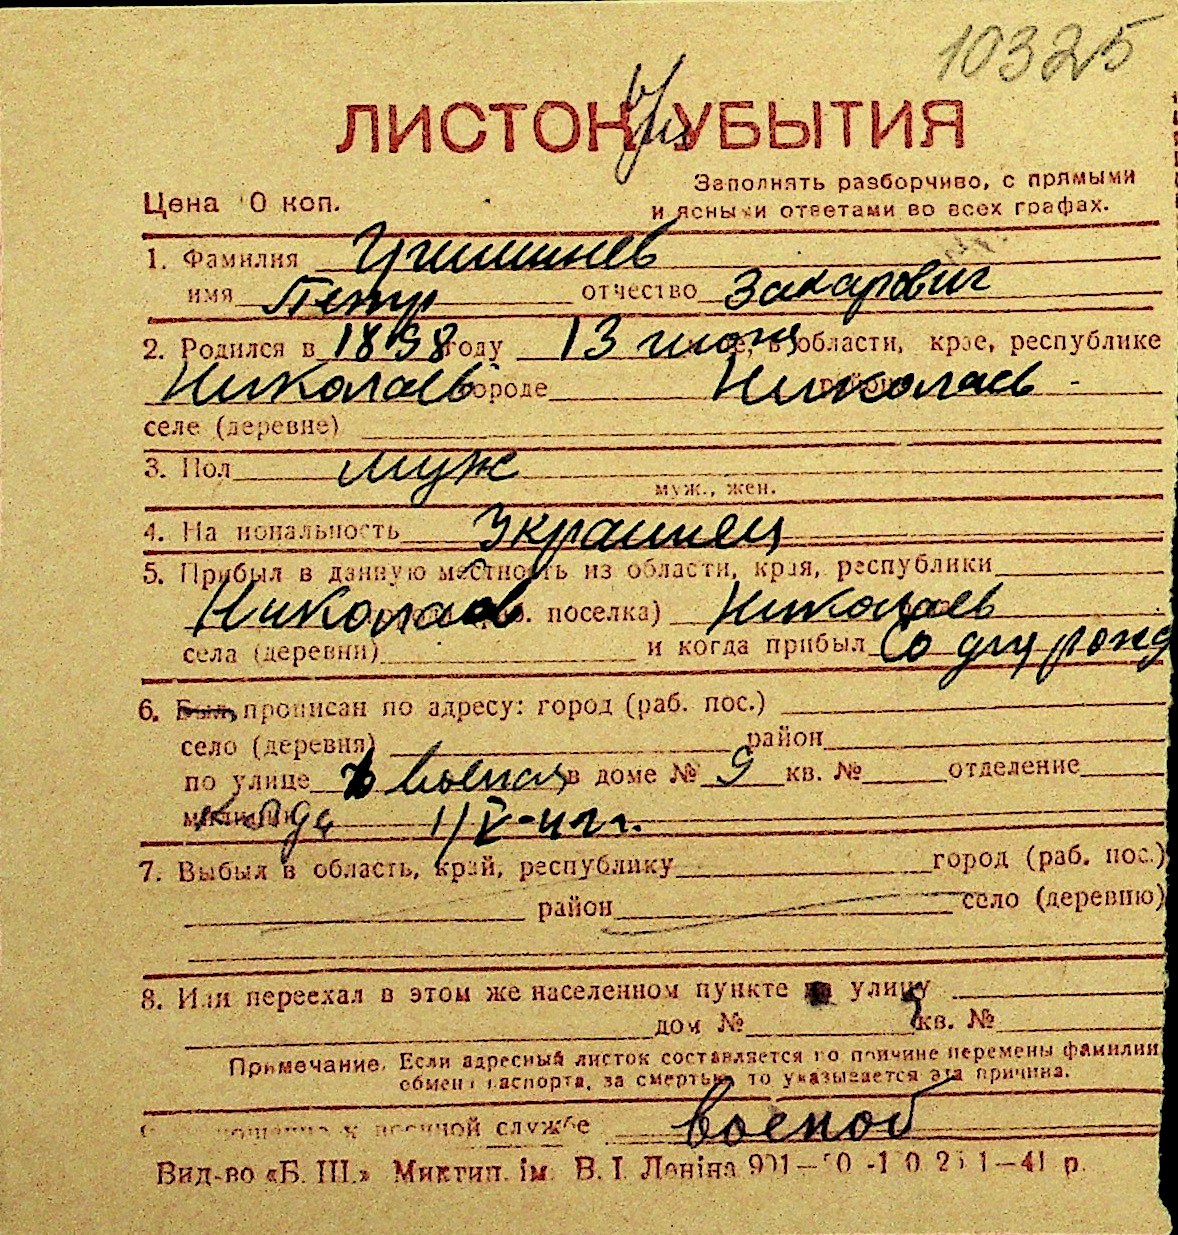 10325
ЛИСТОК УБЫТИЯ
Заполнять разборчиво, с прямыми
Цена 0 коп.
и ясными ответами во всех графах.
1. Фамилия
имя Петр отчество Захарович
2. Родился в 1898 году 13 июня в области, крае, республике
Николаев городе Николаев
селе (деревне)
3. Пол муж
муж., жен.
4. Национальность Украинец
5. Прибыл в данную местность из области, края, республики
Николаев поселка) Николаев
села (деревни) и когда прибыл Со дня рожд
6. Был прописан по адресу: город (раб. пос.)
село (деревня) район
по улице в доме № 9 кв. № отделение
милиции
7. Выбыл в область, край, республику город (раб. пос.)
район село (деревню)
8. Или переехал в этом же населенном пункте на улицу
дом № кв. №
Примечание. Если адресный листок составляется по причине перемены фамилии,
обмена паспорта, за смертью, то указывается эта причина.
военной службе
Вид-во «Б. Ш.» Миктип. ім. В. І. Леніна